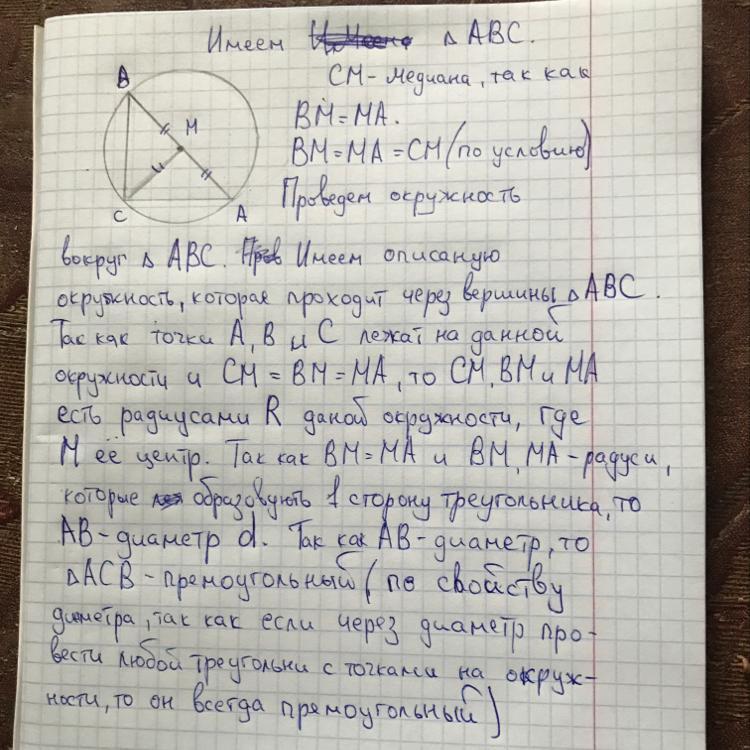 Имеем Δ ABC.
CM - медиана, так как
BM = MA.
BM = MA = CM (по условию)
Проведем окружность
B
M
C
A
вокруг Δ ABC. Имеем описаную
окружность, которая проходит через вершины Δ ABC.
Так как точки A, B и C лежат на данной
окружности и CM = BM = MA, то CM, BM и MA
есть радиусами R даной окружности, где
M её центр. Так как BM = MA и BM, MA - радуси,
которые образовують 1 сторону треугольника, то
AB - диаметр d. Так как AB - диаметр, то
Δ ACB - премоугольный (по свойству
диметра, так как если через диаметр про-
вести любой треугольни с точками на окруж-
ности, то он всегда премоугольный)